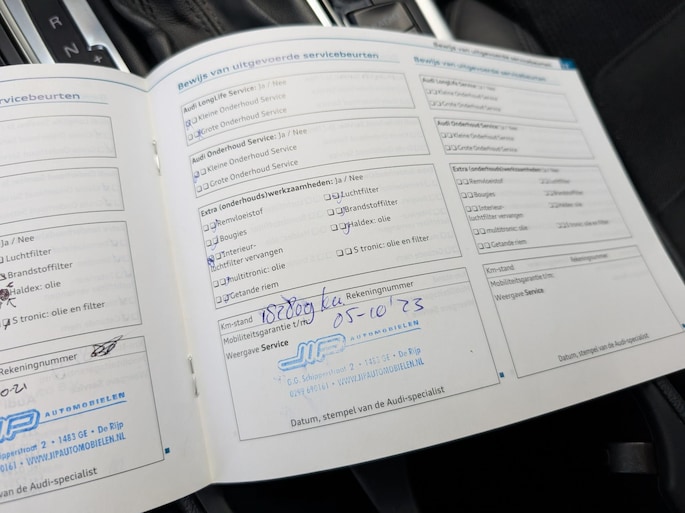 R
N
+
rvicebeurten
Ja / Nee
Luchtfilter
Brandstoffilter
Haldex: olie
S tronic: olie en filter
Rekeningnummer
0-21
AUTOMOBIELEN
2 • 1483 GE • De Rijp
0161 • WWW.JIPAUTOMOBIELEN.NL
van de Audi-specialist
Bewijs van uitgevoerde servicebeurten
Audi LongLife Service: Ja / Nee
Kleine Onderhoud Service
Grote Onderhoud Service
Audi Onderhoud Service: Ja / Nee
Kleine Onderhoud Service
Grote Onderhoud Service
Extra (onderhouds)werkzaamheden: Ja / Nee
Remvloeistof Luchtfilter
Bougies Brandstoffilter
Interieur- Haldex: olie
luchtfilter vervangen
multitronic: olie S tronic: olie en filter
Getande riem
Km-stand Rekeningnummer
Mobiliteitsgarantie t/m: 05-10-'23
Weergave Service
JIP AUTOMOBIELEN
G.D. Schipperstraat 2 • 1483 GE • De Rijp
0299 690161 • WWW.JIPAUTOMOBIELEN.NL
Datum, stempel van de Audi-specialist
Bewijs van uitgevoerde servicebeurten
Bewijs van uitgevoerde servicebeurten
Audi LongLife Service: Ja / Nee
Kleine Onderhoud Service
Grote Onderhoud Service
Audi Onderhoud Service: Ja / Nee
Kleine Onderhoud Service
Grote Onderhoud Service
Extra (onderhouds)werkzaamheden: Ja / Nee
Remvloeistof Luchtfilter
Bougies Brandstoffilter
Interieur- Haldex: olie
luchtfilter vervangen
multitronic: olie S tronic: olie en filter
Getande riem
Km-stand Rekeningnummer
Mobiliteitsgarantie t/m:
Weergave Service
Datum, stempel van de Audi-specialist